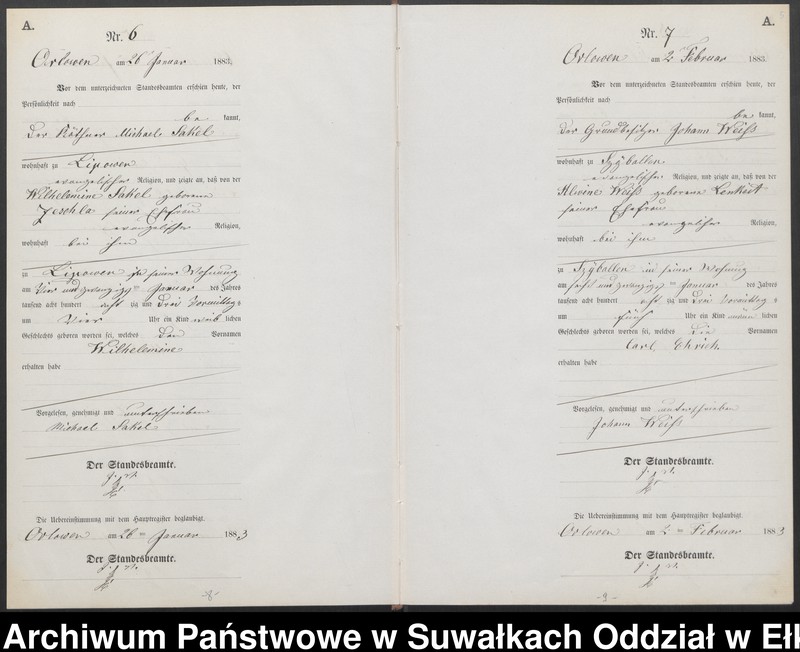 A.
Nr. 6
Orlowen am 26 Januar 1883.
Vor dem unterzeichneten Standesbeamten erschien heute, der
Persönlichkeit nach
be kannt,
der Käthner Michael Sakel
wohnhaft zu Lipowen
evangelischer Religion, und zeigte an, daß von der
Wilhelemine Sakel geborene
Jeschla seiner Ehefrau
evangelischer Religion,
wohnhaft bei ihm
zu Lipowen in seiner Wohnung
am Vier und zwanzigsten Januar des Jahres
tausend acht hundert acht zig und drei Vormittags
um Vier Uhr ein Kind weib lichen
Geschlechts geboren worden sei, welches den Vornamen
Wilhelemine
erhalten habe
Vorgelesen, genehmigt und unterschrieben
Michael Sakel
Der Standesbeamte.
Die Uebereinstimmung mit dem Hauptregister beglaubigt.
Orlowen am 26ten Januar 1883
Der Standesbeamte.
-8-
A.
Nr. 7
Orlowen am 2 Februar 1883.
Vor dem unterzeichneten Standesbeamten erschien heute, der
Persönlichkeit nach
be kannt,
der Grundbesitzer Johann Weiß
wohnhaft zu Szyballen
evangelischer Religion, und zeigte an, daß von der
Alwine Weiß geborene Lenkeit
seiner Ehefrau
evangelischer Religion,
wohnhaft bei ihm
zu Szyballen in seiner Wohnung
am sechs und zwanzigsten Januar des Jahres
tausend acht hundert acht zig und drei Vormittags
um fünf Uhr ein Kind männ lichen
Geschlechts geboren worden sei, welches die Vornamen
Carl Ehrich
erhalten habe
Vorgelesen, genehmigt und unterschrieben
Johann Weiß
Der Standesbeamte.
Die Uebereinstimmung mit dem Hauptregister beglaubigt.
Orlowen am 2ten Februar 1883
Der Standesbeamte.
-9-
Archiwum Państwowe w Suwałkach Oddział w Ełk